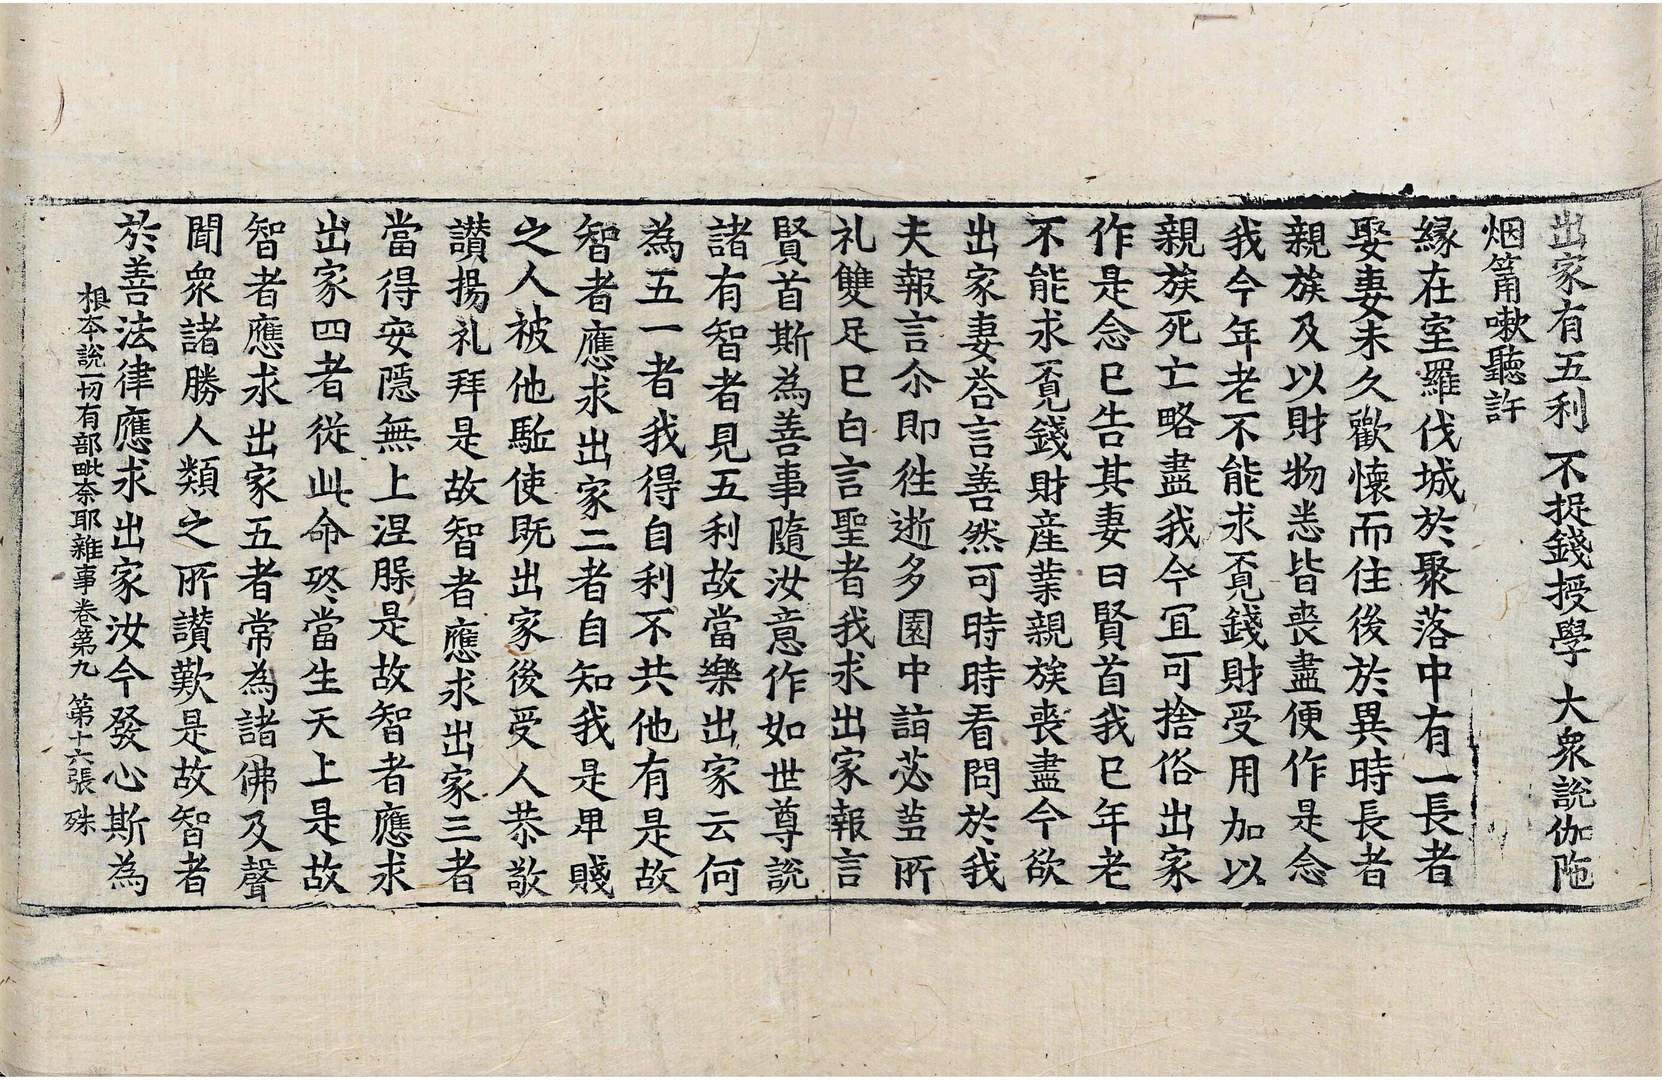 出家有五利 不捉錢授學 大衆說伽陁
烟筩嗽聽許
緣在室羅伐城於聚落中有一長者
娶妻未久歡懷而住後於異時長者
親族及以財物悉皆喪盡便作是念
我今年老不能求覔錢財受用加以
親族死亡略盡我今冝可捨俗出家
作是念已告其妻曰賢首我已年老
不能求覔錢財産業親族喪盡今欲
出家妻荅言善然可時時看問於我
夫報言尒即徃逝多園中詣苾蒭所
礼雙足已白言聖者我求出家報言
賢首斯為善事隨汝意作如世尊說
諸有智者見五利故當樂出家云何
為五一者我得自利不共他有是故
智者應求出家二者自知我是卑賤
之人被他駈使既出家後受人恭敬
讚揚礼拜是故智者應求出家三者
當得安隱無上涅槃是故智者應求
出家四者從此命終當生天上是故
智者應求出家五者常為諸佛及聲
聞衆諸勝人類之所讚歎是故智者
於善法律應求出家汝今發心斯為
根本說一切有部毗奈耶雜事卷第九 第十六張 殊